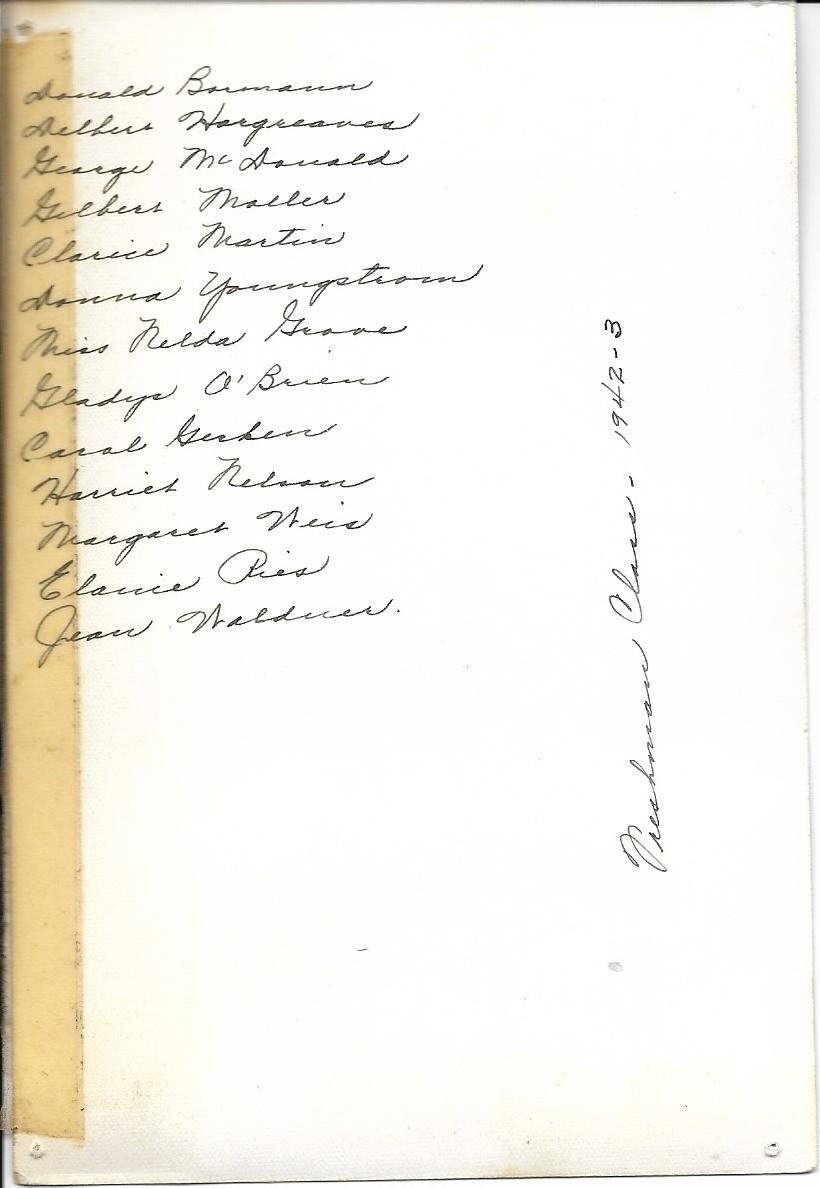 Donald Bormann
Delbert Hargreaves
George McDonald
Gilbert Moller
Clarice Martin
Donna Youngstrom
Miss Nelda Grove
Gladys O'Brien
Carol Gerken
Harriet Nelson
Margaret Weis
Elaine Ries
Jean Waldner.
Freshman Class - 1942-3